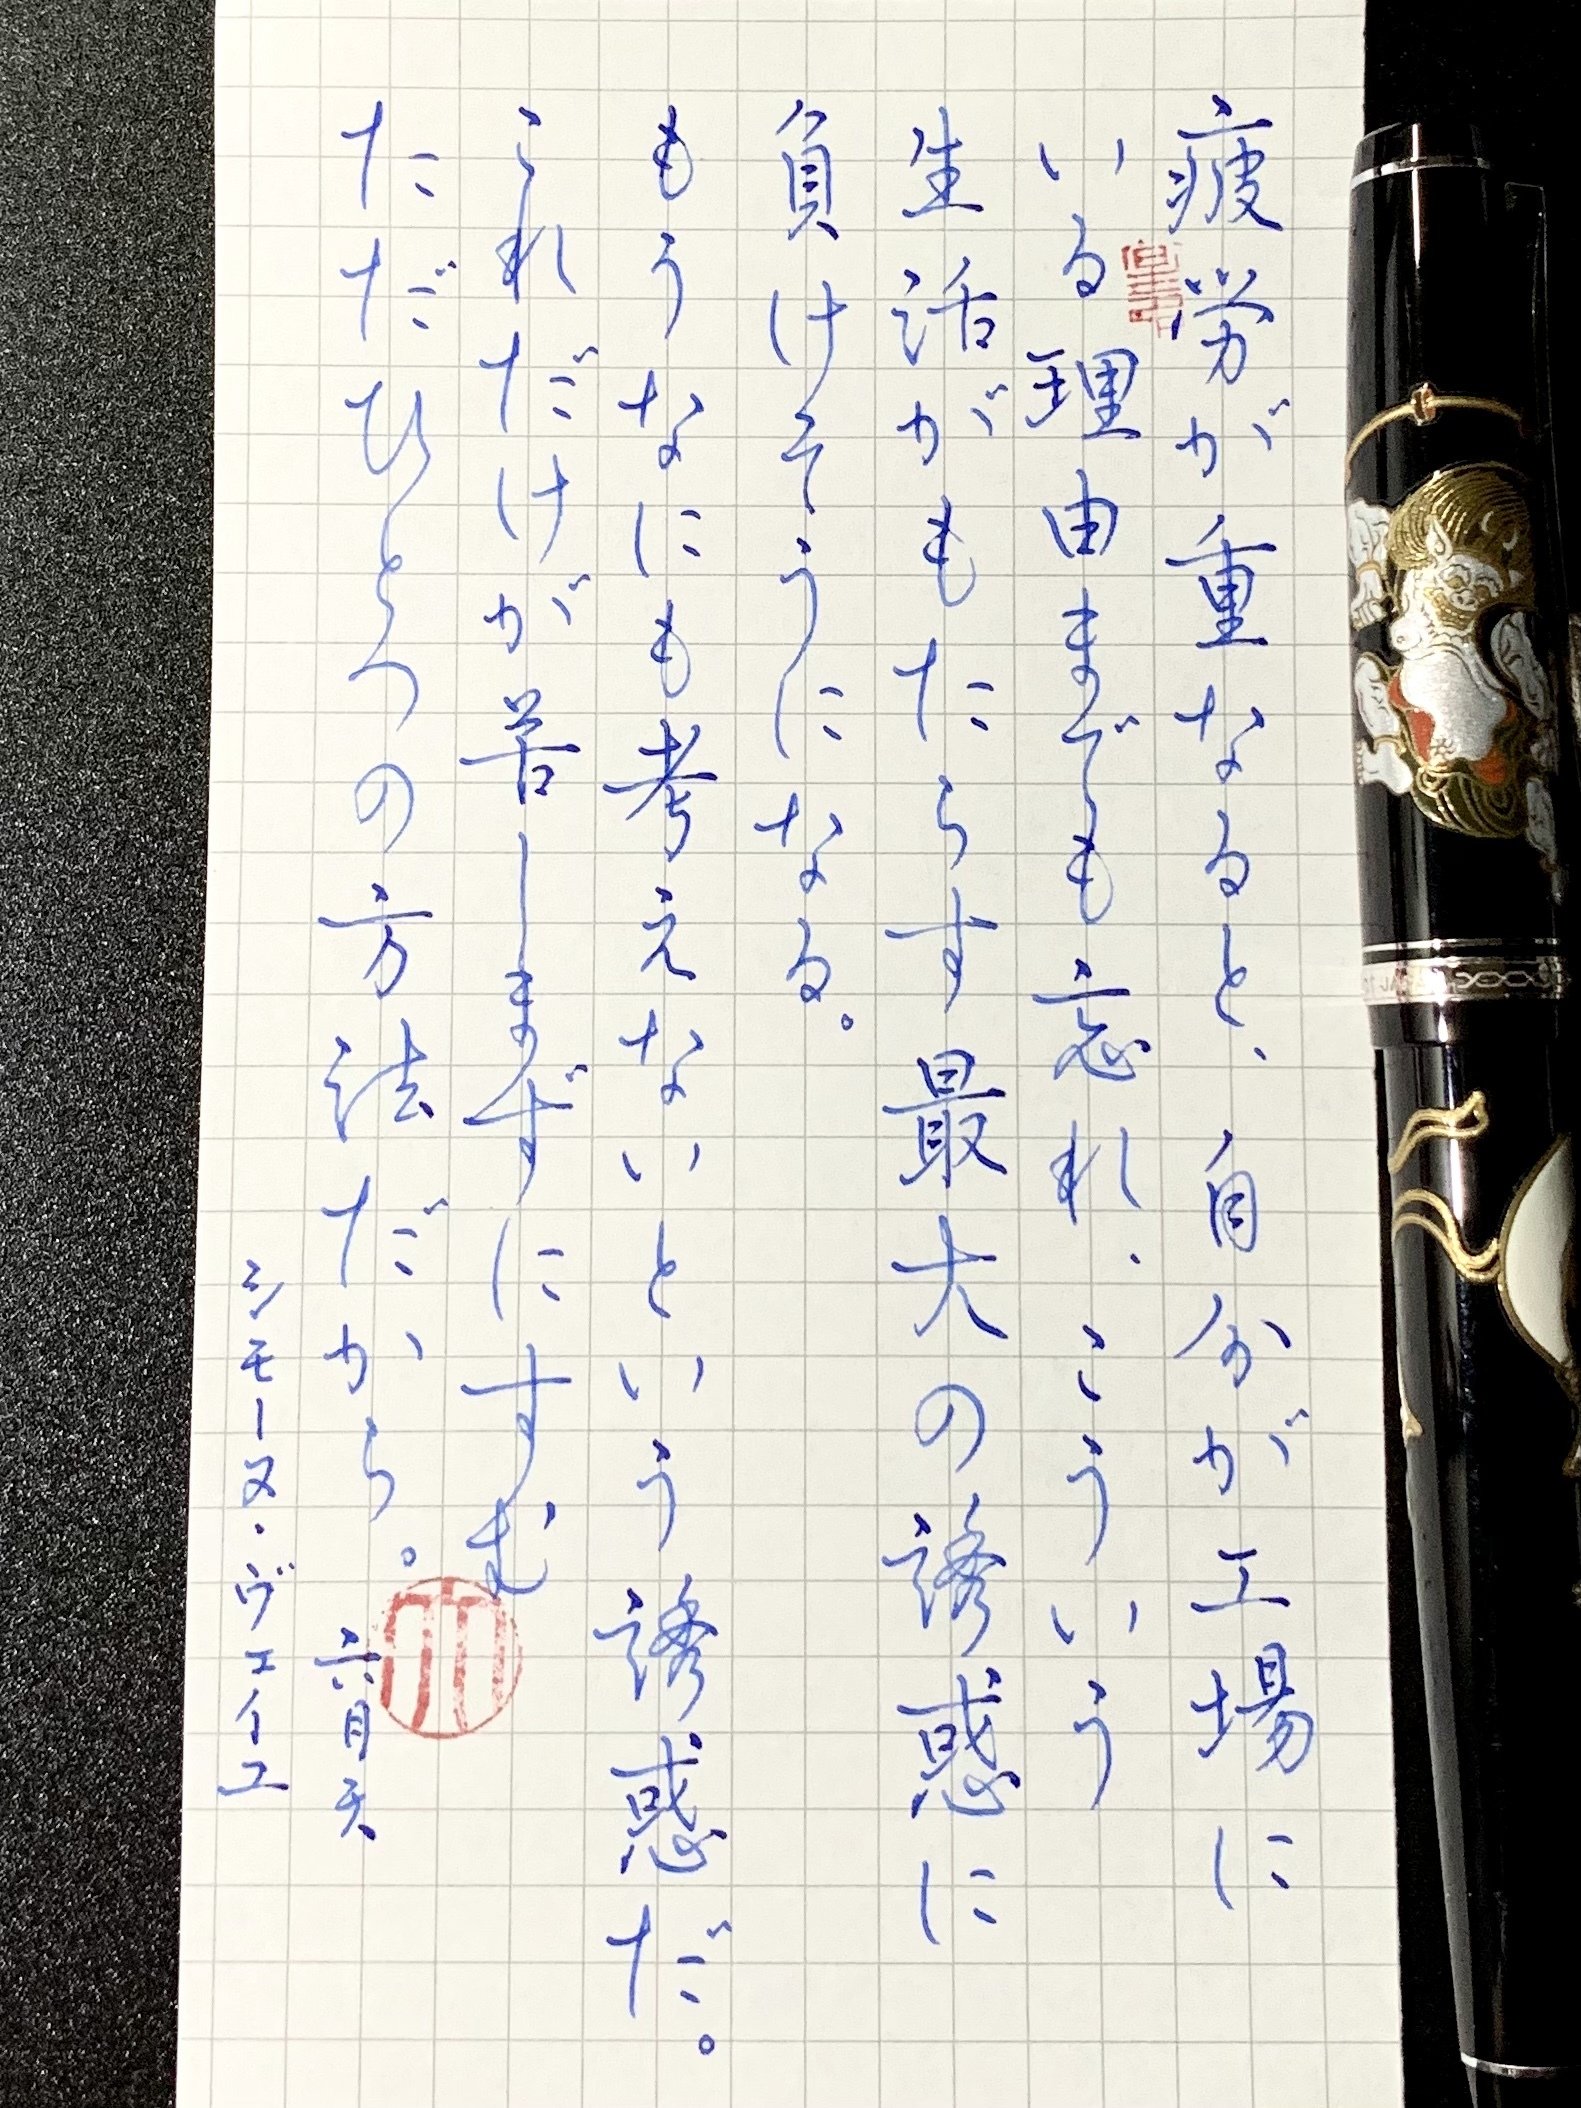 疲労が重なると、自分が工場に
いる理由までも忘れ、こういう
生活がもたらす最大の誘惑に
負けそうになる。
もうなにも考えないという誘惑だ。
これだけが苦しまずにすむ
ただひとつの方法だから。
六月天
シモーヌ・ヴェイユ